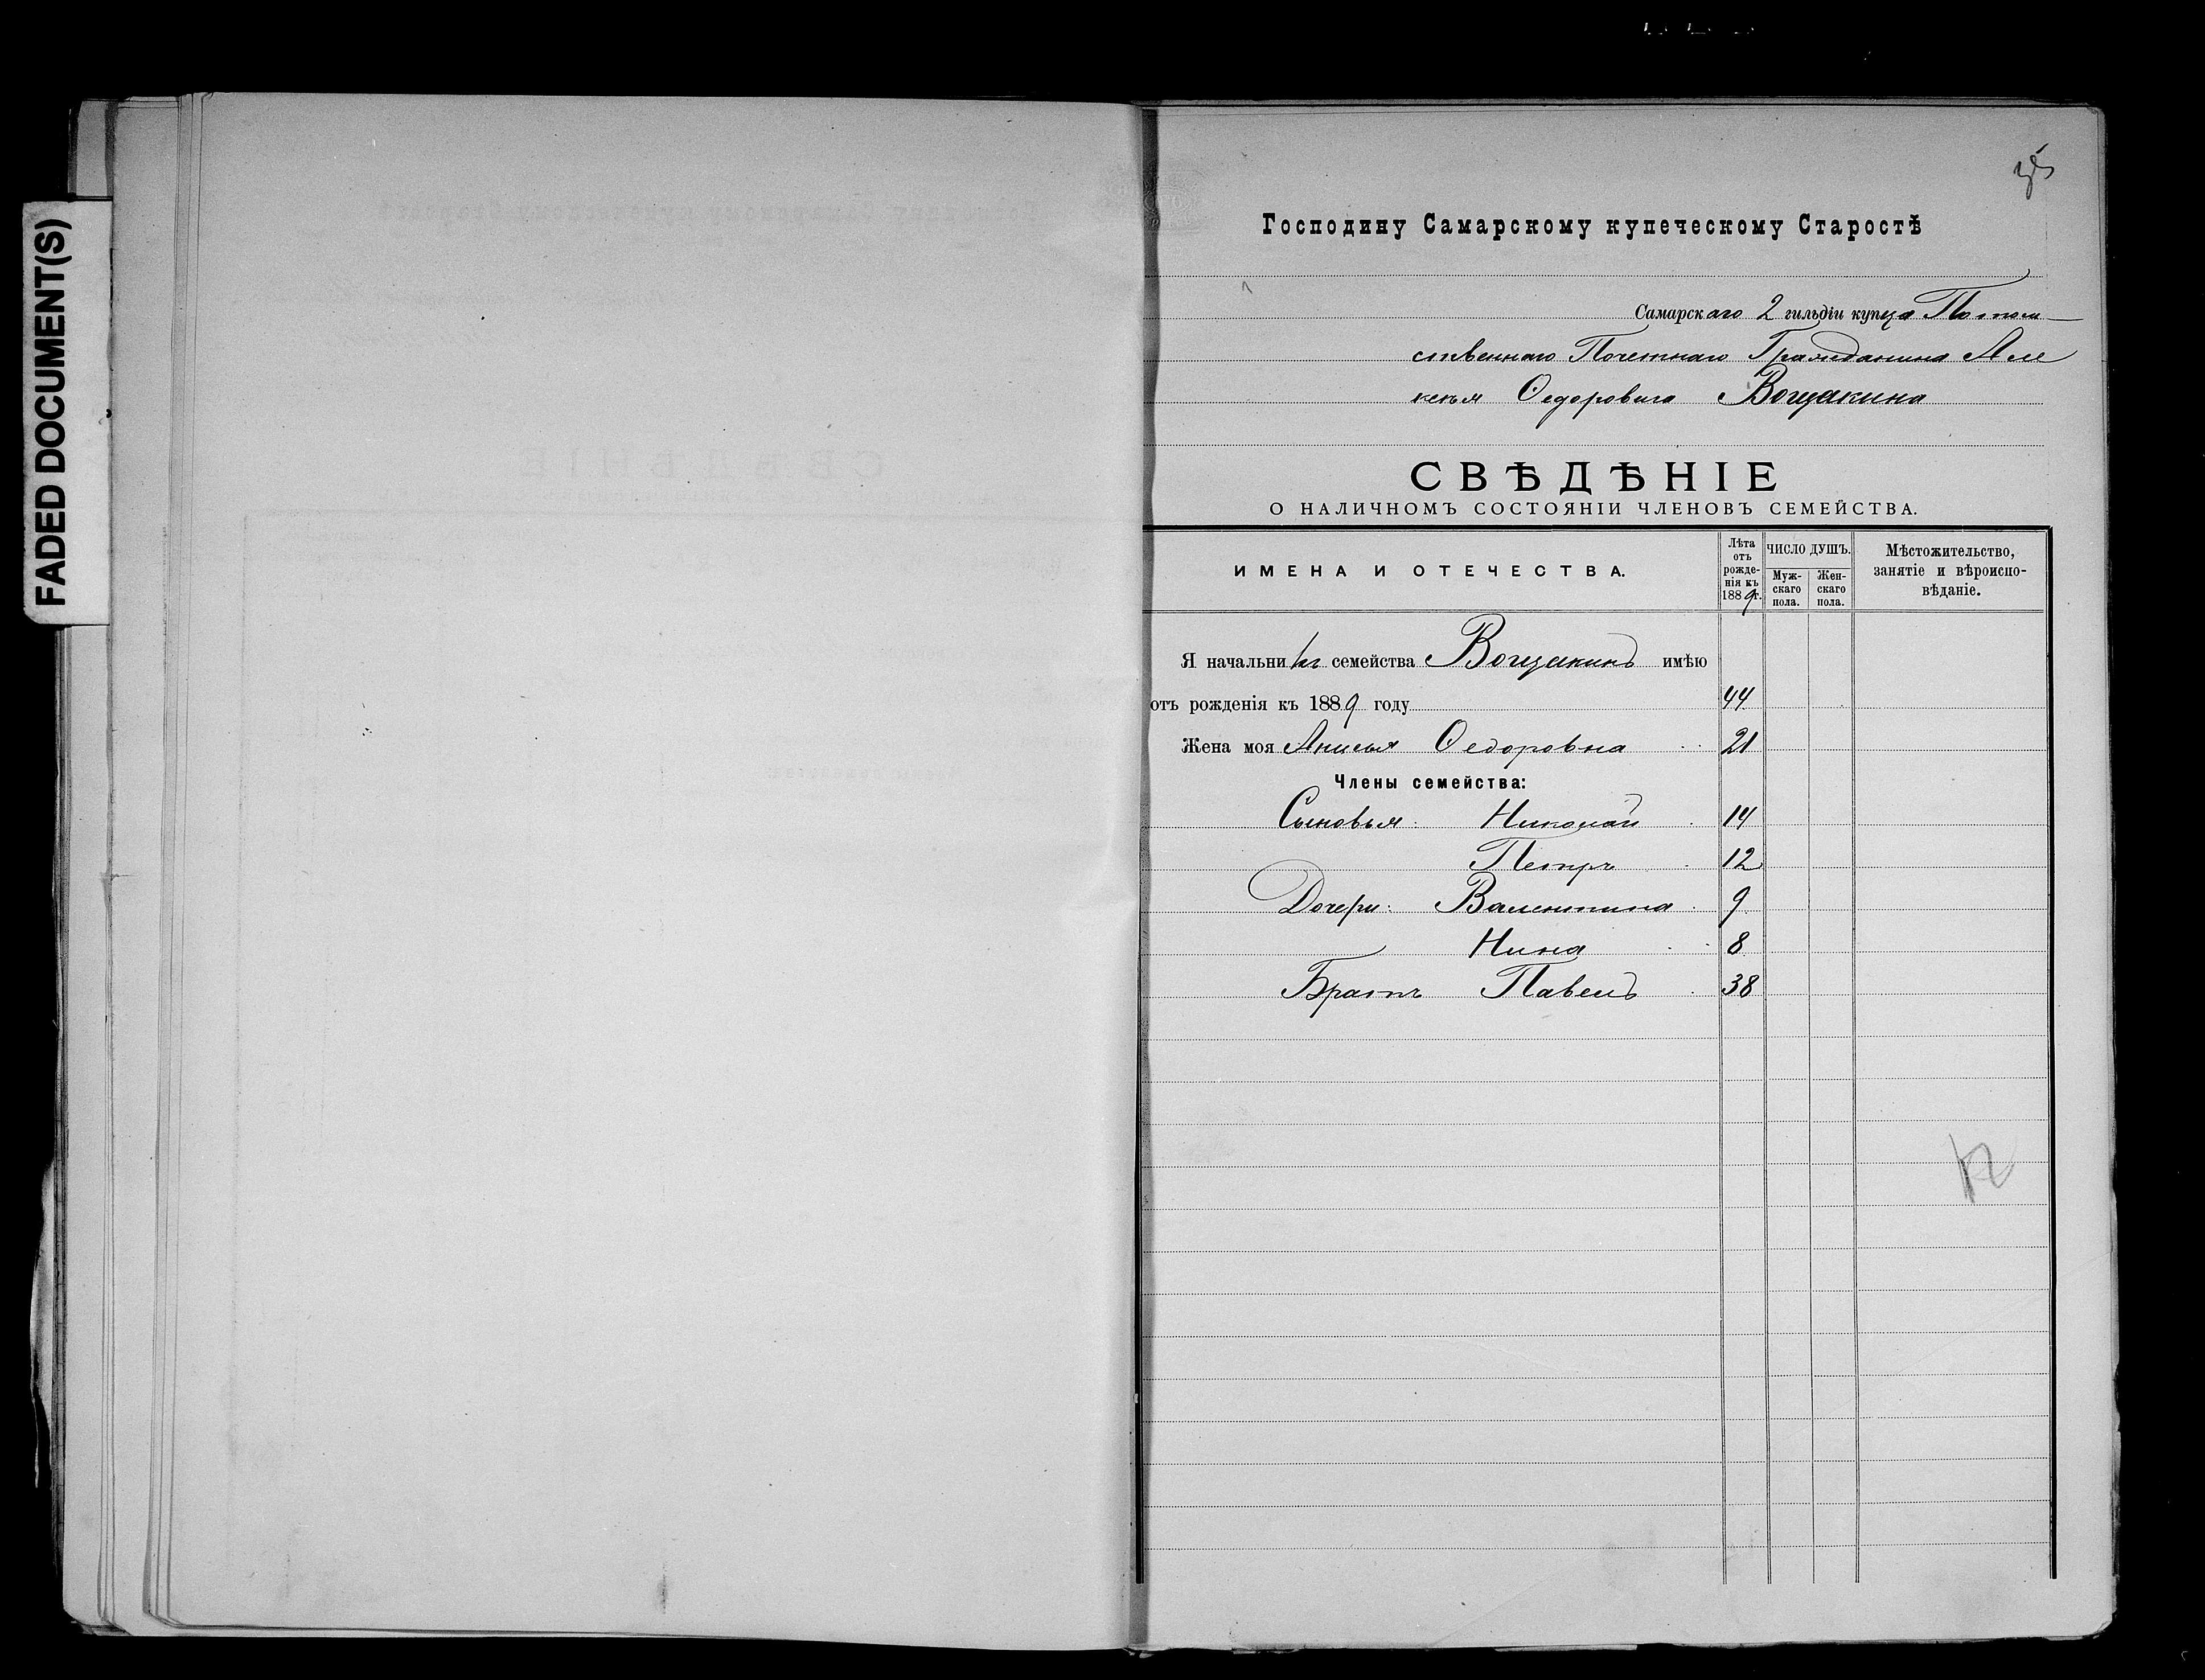 FADED DOCUMENT(S)
Господину Самарскому купеческому Старостѣ
Самарскаго 2 гильдіи купца Потом-
ственнаго Почетнаго Гражданина Але
ксѣя Ѳедоровича Вощакина
СВѢДѢНІЕ
О НАЛИЧНОМЪ СОСТОЯНІИ ЧЛЕНОВЪ СЕМЕЙСТВА.
ИМЕНА И ОТЕЧЕСТВА.
Лѣта
отъ
рожде-
нія къ
1889 г.
ЧИСЛО ДУШЪ.
Муж-
скаго
пола.
Жен-
скаго
пола.
Мѣстожительство,
занятіе и вѣроиспо-
вѣданіе.
Я начальникъ семейства Вощакинъ имѣю
отъ рожденія къ 1889 году 44
Жена моя Анисья Ѳедоровна 21
Члены семейства:
Сыновья: Николай 14
Петръ 12
Дочери: Валентина 9
Нина 8
Братъ Павелъ 38